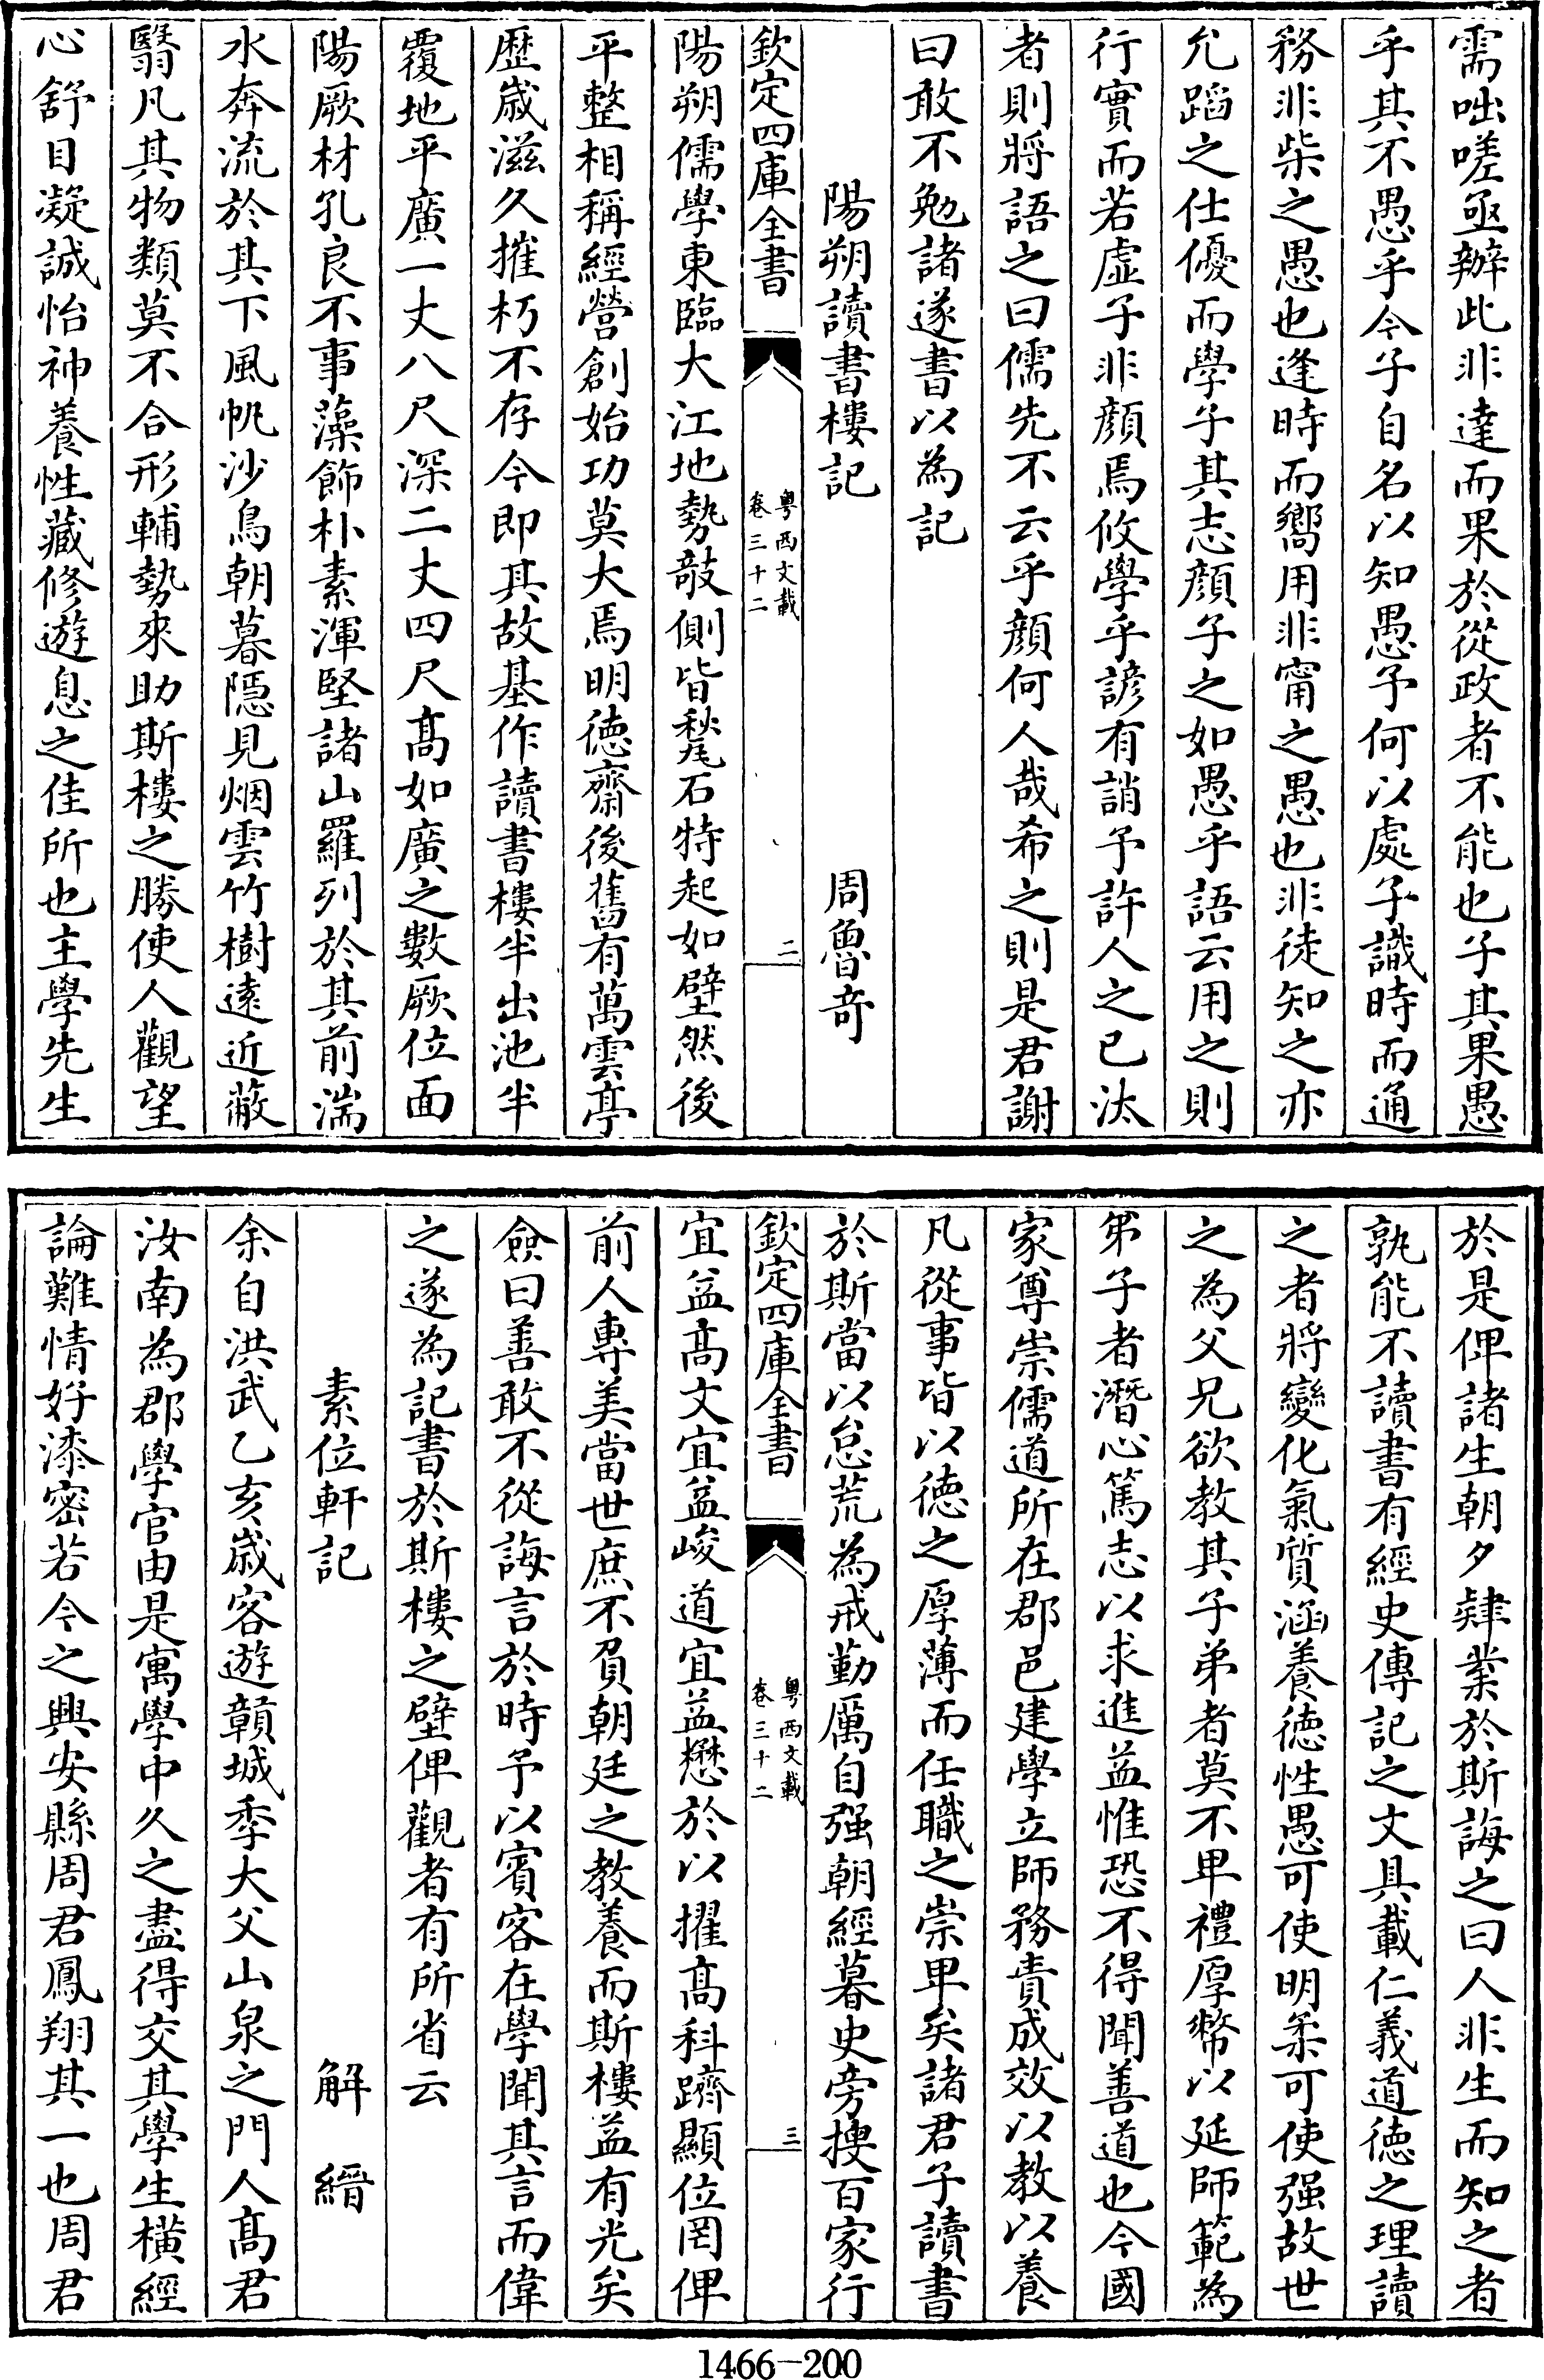 需咄嗟亟辦此非達而果於從政者不能也子其果愚
乎其不愚乎今子自名以知愚予何以處子識時而通
務非柴之愚也逢時而嚮用非甯之愚也非徒知之亦
允蹈之仕優而學子其志顔子之如愚乎語云用之則
行實而若虛子非顔焉攸學乎諺有誚予許人之已汰
者則將語之曰儒先不云乎顔何人哉希之則是君謝
曰敢不勉諸遂書以為記
陽朔讀書樓記 周魯奇
欽定四庫全書 粤西文載 卷三十二 二
陽朔儒學東臨大江地勢敧側皆甃石特起如壁然後
平整相稱經營創始功莫大焉明徳齋後舊有萬雲亭
歴歲滋久摧朽不存今即其故基作讀書樓半出池半
覆地平廣一丈八尺深二丈四尺髙如廣之數厥位面
陽厥材孔良不事藻飾朴素渾堅諸山羅列於其前湍
水奔流於其下風帆沙鳥朝暮隠見烟雲竹樹逺近蔽
翳凡其物類莫不合形輔勢來助斯樓之勝使人觀望
心舒目凝誠怡神養性藏修遊息之佳所也主學先生
於是俾諸生朝夕肄業於斯誨之曰人非生而知之者
孰能不讀書有經史傳記之文具載仁義道徳之理讀
之者將變化氣質涵養徳性愚可使明柔可使强故世
之為父兄欲教其子弟者莫不卑禮厚幣以延師範為
弟子者潛心篤志以求進益惟恐不得聞善道也今國
家尊崇儒道所在郡邑建學立師務責成效以教以養
凡從事皆以徳之厚薄而任職之崇卑矣諸君子讀書
於斯當以怠荒為戒勤厲自强朝經暮史旁搜百家行
欽定四庫全書 粤西文載 卷三十二 三
宜益髙文宜益峻道宜益懋於以擢髙科躋顯位罔俾
前人専美當世庶不負朝廷之教養而斯樓益有光矣
僉曰善敢不從誨言於時予以賓客在學聞其言而偉
之遂為記書於斯樓之壁俾觀者有所省云
素位軒記 解縉
余自洪武乙亥歲客遊贛城季大父山泉之門人髙君
汝南為郡學官由是寓學中久之盡得交其學生橫經
論難情好漆密若今之興安縣周君鳳翔其一也周君
1466—200